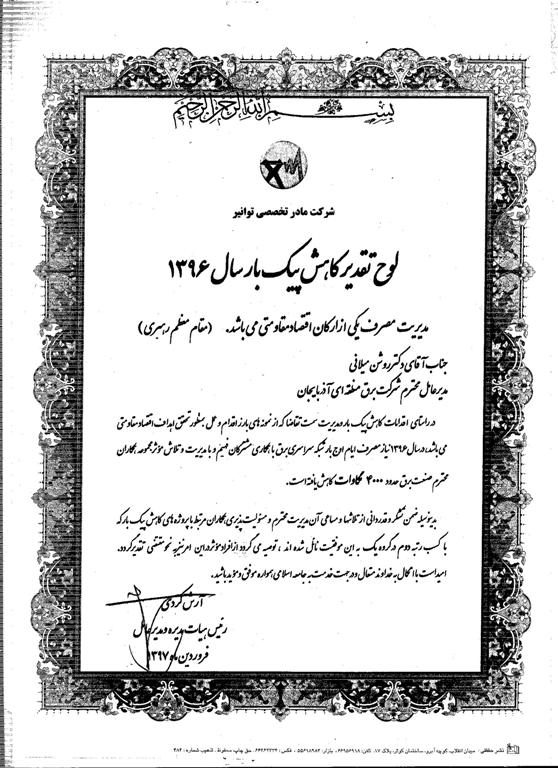 بسم الله الرحمن الرحیم
شرکت مادر تخصصی توانیر
لوح تقدیر کاهش پیک بار سال ۱۳۹۶
مدیریت مصرف یکی از ارکان اقتصاد مقاومتی می باشد. (مقام معظم رهبری)
جناب آقای دکتر روشن میلانی
مدیرعامل محترم شرکت برق منطقه ای آذربایجان
در راستای اقدامات کاهش پیک بار و مدیریت سمت تقاضا که از نمونه های بارز اقدام و عمل بمنظور تحقق اهداف اقتصاد مقاومتی
می باشد، در سال ۱۳۹۶ نیاز مصرف ایام اوج بار شبکه سراسری برق با همکاری مشترکان فهیم و با مدیریت و تلاش مؤثر مجموعه همکاران
محترم صنعت برق حدود ۴۰۰۰ مگاوات کاهش یافته است.
بدینوسیله ضمن تشکر و قدردانی از تلاشها و مساعی آن مدیریت محترم و مسئولیت پذیری همکاران مرتبط با پروژه های کاهش پیک بار که
با کسب رتبه دوم در گروه یک به این موفقیت نائل شده اند، توصیه می گردد از افراد مؤثر در این امر نیز به نحو مقتضی تقدیر گردد.
امید است با اتکال به خداوند متعال و در جهت خدمت به جامعه اسلامی همواره موفق و مؤید باشید.
آرش کردی
رئیس هیات مدیره و مدیرعامل
فروردین ماه ۱۳۹۷
نشر حقوقی: میدان انقلاب، کوچه آبرو، ساختمان کوثر، پلاک ۱۷، تلفن: ۶۶۹۵۶۹۱۸، بازار: ۵۵۶۱۸۹۸۲، فکس: ۶۶۴۶۲۲۲۴، حق چاپ محفوظ،